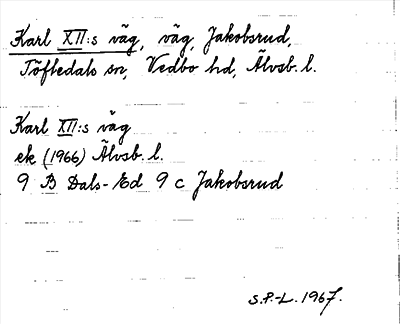 Karl XII:s väg, väg, Jakobsrud,
Töftedals sn, Vedbo hd, Älvsb. l.
Karl XII:s väg
ek (1966) Älvsb. l.
9 B Dals-Ed 9 c Jakobsrud
S.P.-L. 1967.